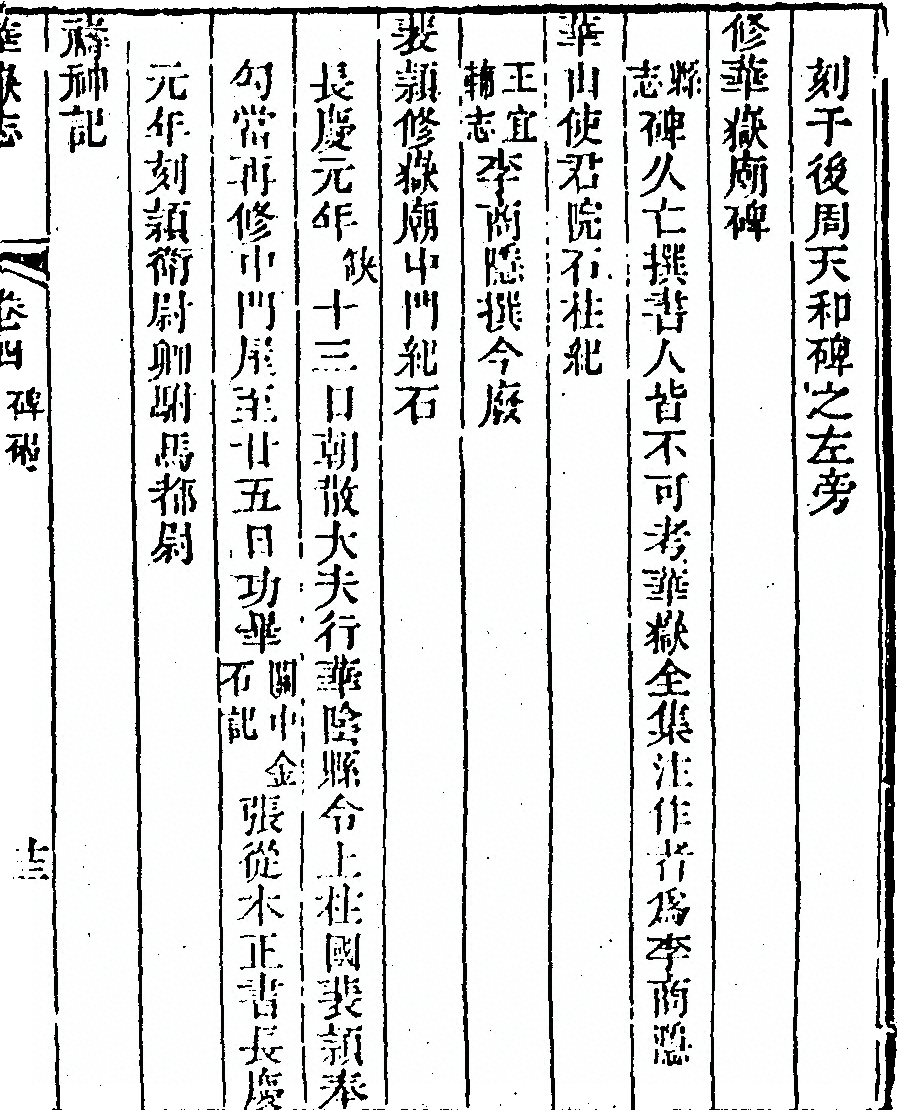 刻于後周天和碑之左旁
修華嶽廟碑
縣志碑久亡撰書人皆不可考華嶽全集注作者為李商隱
華山使君院石柱紀
王宜輔志李商隱撰今廢
裴頴修嶽廟中門紀石
長慶元年缺十三日朝散大夫行華陰縣令上柱國裴頴奉
勾當再修中門屋至廿五日功畢關中金石記張從本正書長慶
元年刻頴衛尉卿駙馬都尉
禱神記
華嶽志
卷四
碑碣
十三